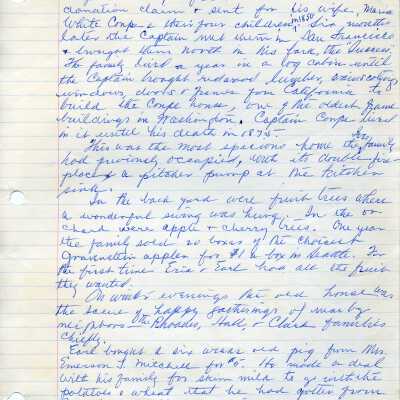 donation claim & sent for his wife, Maria
White Coupe & their four children in 1850. Six months
later the Captain met them in San Francisco
& brought them north in his bark, the "Success."
The family lived a year in a log cabin until
the Captain brought redwood lumber,
windows, doors & from California to
build the Coupe house, one of the oldest frame
buildings in Washington. Captain Coupe lived
in it until his death in 1875.
This was the most spacious home the family
had previously occupied, with its double fire-
place & a pitcher pump at the kitchen
sink.
In the back yard were fruit trees where
a wonderful swing was hung. In the or-
chard were apple & cherry trees. One year
the family sold 20 boxes of the choicest
Gravenstein apples for $1 a box in Seattle. For
the first time & Earl had all the fruit
they wanted.
On winter evenings the old house was
the scene of happy gatherings of nearby
neighbors - the Rhodes, Hall, & Clark families
chiefly.
Earl bought a six weeks old pig from Mrs.
Emerson S. Mitchell for $5. He made a deal
with his family for skim milk to go with the
potatoes & wheat that he had gotten from